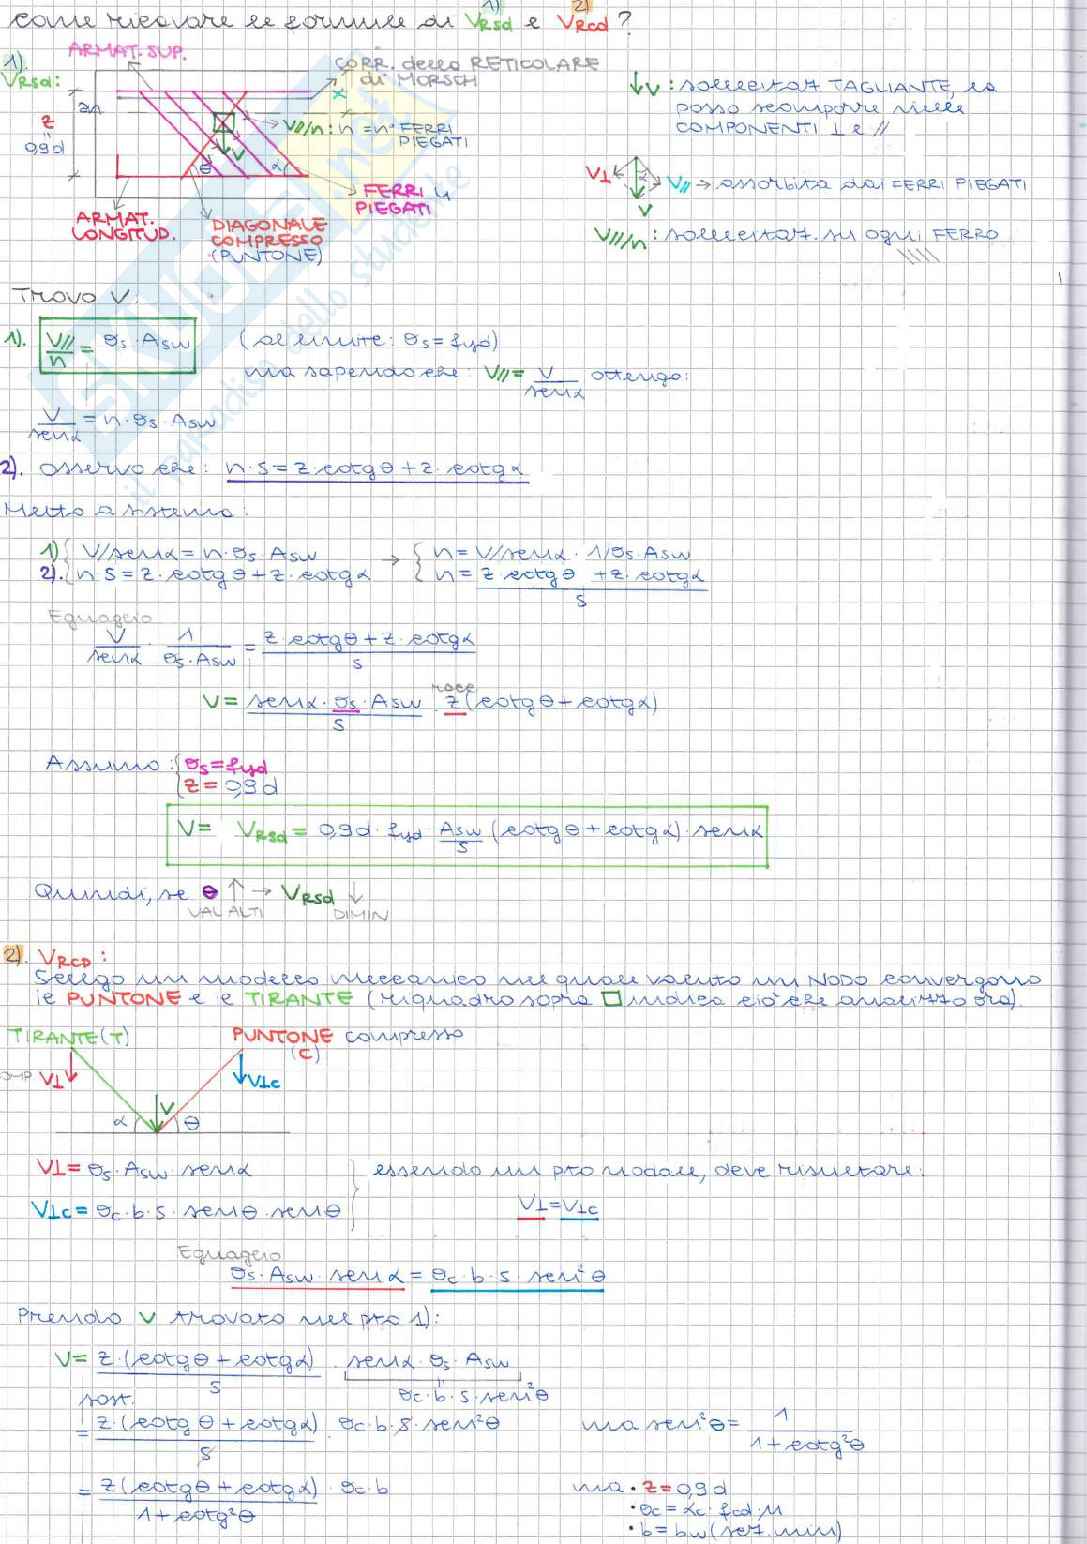 come ricavare le formule di VRsd e VRcd ?
1) 2)
1).
VRsd:
ARMAT. SUP.
CORR. della RETICOLARE
di MORSCH
z
"
0,9d
V///n : n = n° FERRI
PIEGATI
V
θ
α
FERRI
PIEGATI
ARMAT.
LONGITUD.
DIAGONALE
COMPRESSO
(PUNTONE)
↓V : sollecitaz TAGLIANTE, la
posso scomporre nelle
COMPONENTI ⊥ e //
V⊥ V// → assorbita dai FERRI PIEGATI
V
V///n : sollecitaz. su ogni FERRO
Trovo V:
1). V///n = σs · Asw (al limite: σs = fyd)
ma sapendo che: V// = V/senα ottengo:
V/senα = n · σs · Asw
2). osservo che: n · s = z cotgθ + z · cotgα
Metto a sistema:
1) { V/senα = n · σs · Asw → { n = V/senα · 1/σs · Asw
2). { n s = z · cotgθ + z · cotgα { n = z cotgθ + z · cotgα / s
Eguaglio
V/senα · 1/σs · Asw = z · cotgθ + z · cotgα / s
V = senα · σs · Asw / s · z (cotgθ + cotgα)
Assumo : { σs = fyd
{ z = 0,9d
V = VRsd = 0,9d · fyd Asw/s (cotgθ + cotgα) · senα
Quindi, se θ ↑ → VRsd ↓
VAL ALTI DIMIN
2). VRCD :
Scelgo un modello meccanico nel quale valuto un NODO convergono
il PUNTONE e il TIRANTE (riquadro sopra □ indica ciò che analizzo ora).
TIRANTE (T) PUNTONE compresso
(C)
V⊥ V⊥c
V
α θ
V⊥ = σs · Asw · senα } essendo un pto nodale, deve risultare:
V⊥c = σc · b · s · senθ · senθ V⊥ = V⊥c
Eguaglio
σs · Asw · senα = σc · b · s · sen²θ
Prendo V trovato nel pto 1):
V = z · (cotgθ + cotgα) / s · senα · σs · Asw
"
σc · b · s · sen²θ
sost.
= z · (cotgθ + cotgα) / s · σc · b · s · sen²θ ma sen²θ = 1 / 1 + cotg²θ
= z (cotgθ + cotgα) / 1 + cotg²θ · σc · b ma · z = 0,9d
· σc = αc · fcd · ν
· b = bw (sez. min)
sKuola.net
il paradiso dello studente